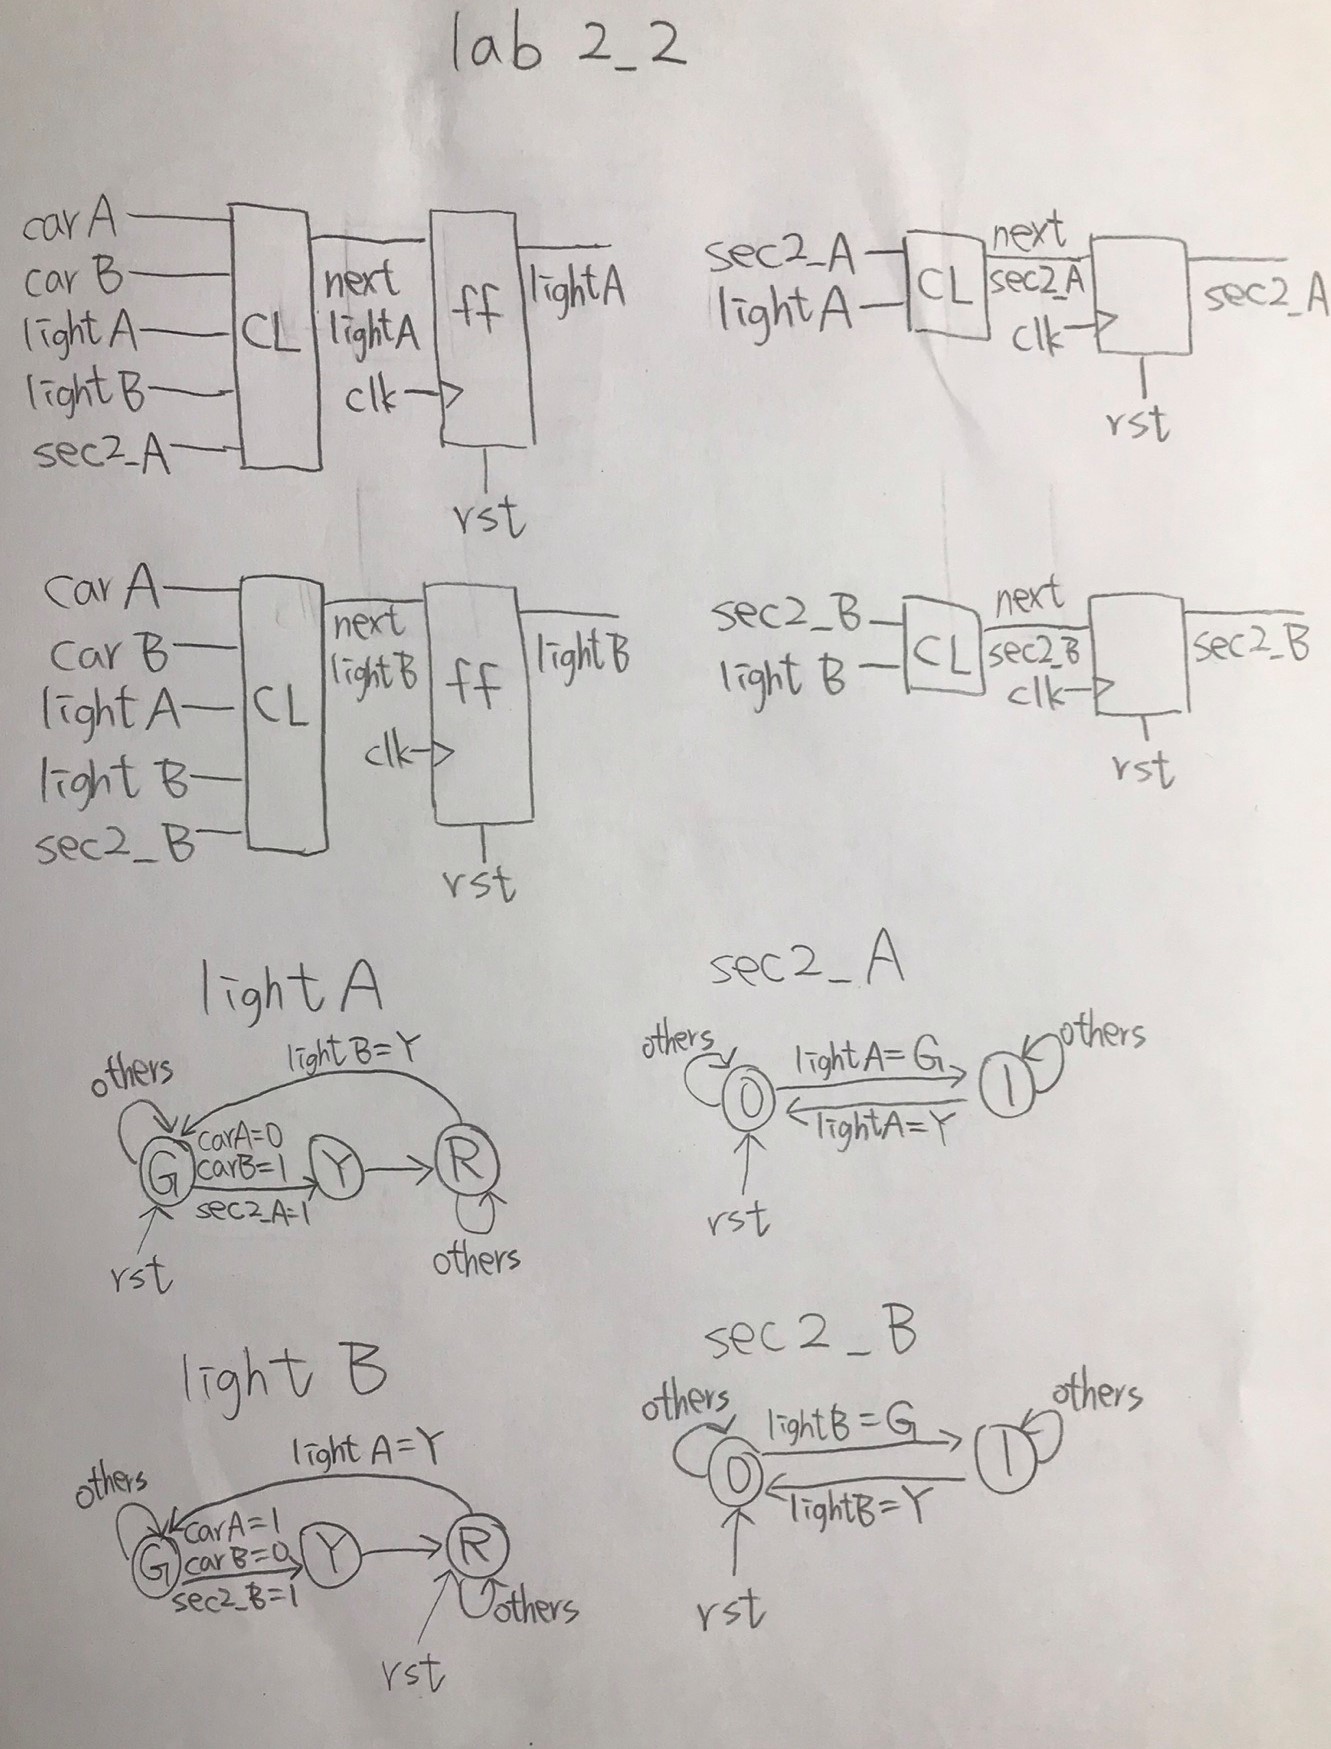 lab 2_2
carA
carB
lightA
lightB
sec2_A
CL
next
lightA
clk
ff
lightA
rst
sec2_A
lightA
CL
next
sec2_A
clk
sec2_A
rst
carA
carB
lightA
lightB
sec2_B
CL
next
lightB
clk
ff
lightB
rst
sec2_B
lightB
CL
next
sec2_B
clk
sec2_B
rst
lightA
lightB=Y
others
G
carA=0
carB=1
sec2_A=1
Y
R
others
rst
sec2_A
others
0
lightA=G
lightA=Y
1
others
rst
lightB
lightA=Y
others
G
carA=1
carB=0
sec2_B=1
Y
R
others
rst
sec2_B
others
0
lightB=G
lightB=Y
1
others
rst